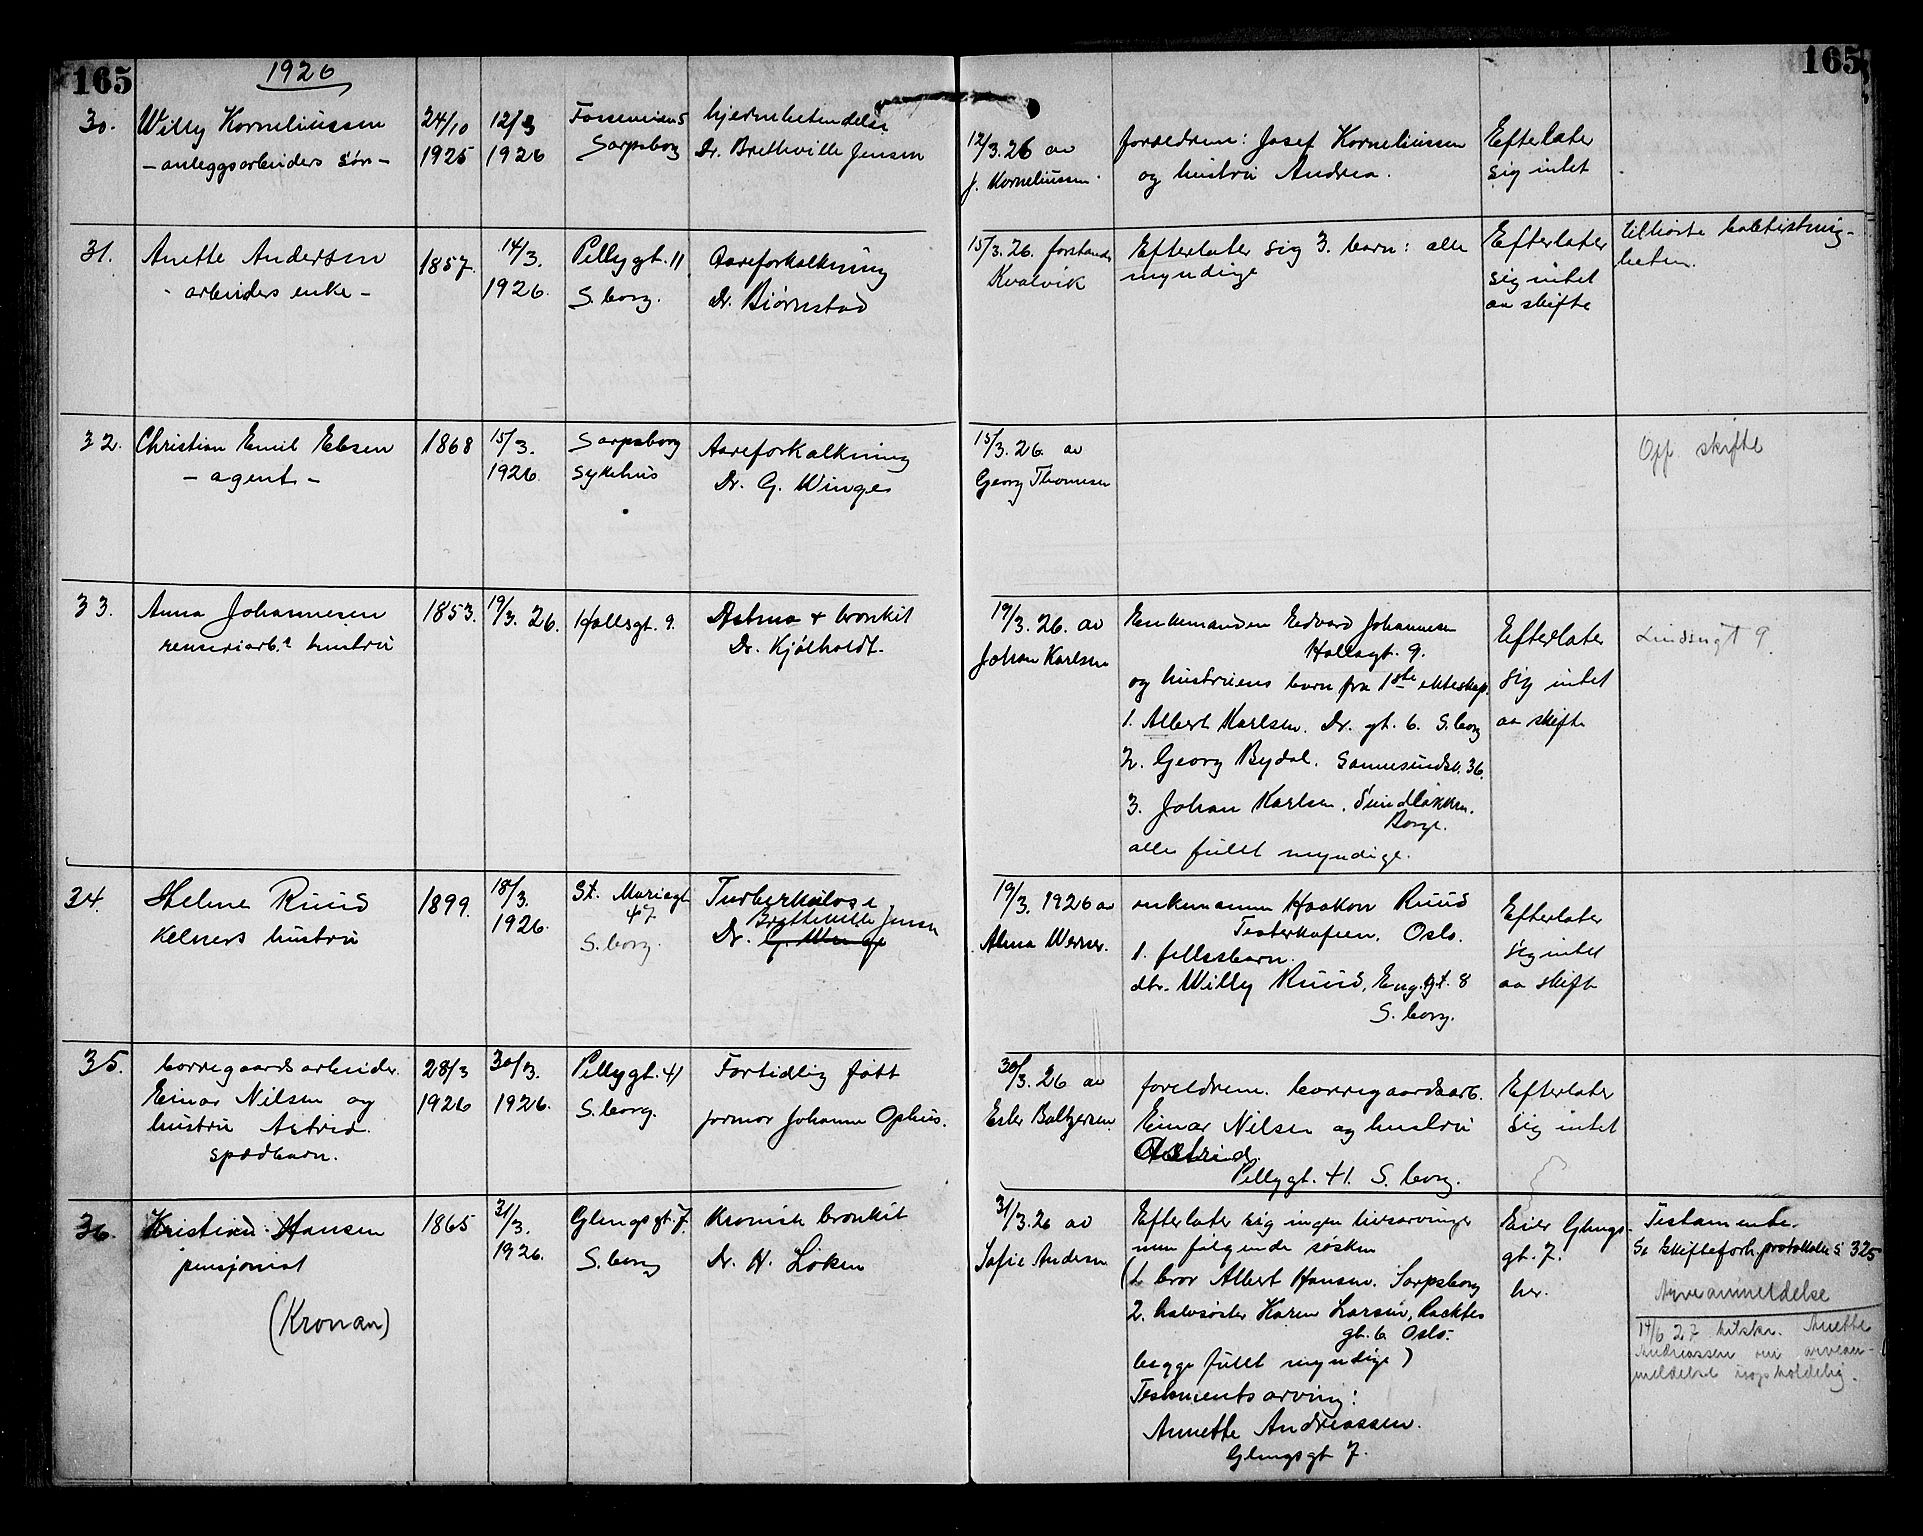 165
1926
165
30.
Willy Korneliussen
- anleggsarbeiders sön -
24/10
1925
12/3
1926
Sarpsborg
hjernebetendelse
Dr. Bretteville Jensen
12/3.26 av
J. Korneliussen.
foreldrene: Josef Korneliussen
og hustru Andrea.
Efterlater
sig intet
31.
Anette Andersen
- arbeiders enke -
1857.
14/3.
1926.
Pellygt. 11
S.borg.
Aareforkalkning
Dr. Bjørnstad
15/3.26. forstander
Kvalvik
Efterlater sig 3. barn: alle
myndige
Efterlater
sig intet
aa skifte
tilhörte babtistmenig-
heten.
32.
Christian Emil Ebsen
- agent -
1868
15/3.
1926.
Sarpsborg
sykehus
Aareforkalkning
Dr. G. Winge
15/3.26. av
Georg Thomesen
Off. skifte
33.
Anna Johannesen
renseriarb. hustru
1853.
19/3. 26.
Hallsgt. 9.
Astma + bronkit
Dr. Kjölholdt.
19/3. 26. av
Johan Karlsen
Enkemanden Edvard Johannesen
Hallsgt. 9.
og hustruens barn fra 1ste ekteskap.
1. Albert Karlsen. Dr. gt. 6. S.borg
2. Georg Bydal. Sannesundsv. 36.
3. Johan Karlsen. Sundlökken.
Borge.
alle fullt myndige.
Efterlater
sig intet
aa skifte
Lundsgt 9.
34.
Helene Ruud
Kelners hustru
1899.
18/3.
1926.
St. Mariegt
47
S.borg.
Turberkulose
Bretteville Jensen
Dr. G. Winge
19/3. 1926 av
Alma Werner.
enkemann Haakon Ruud
Oslo.
1. fellesbarn.
dbr. Willy Ruud, Eng.gt. 8
S.borg.
Efterlater
sig intet
aa skifte
35.
borregaardsarbeider
Einar Nilsen og
hustru Astrid.
spædbarn.
28/3
1926
30/3.
1926.
Pellygt. 41
S.borg.
Fortidlig født
jormor Johanne Ophus.
30/3.26 av
Ester Baltzersen.
foreldrene. borregaardsarb.
Einar Nilsen og hustru
Astrid.
Pellygt. 41. S.borg.
Efterlater
sig intet
36.
Kristian Hansen
pensjonist
(Kronan)
1865
31/3.
1926.
Glengsgt. 7.
S.borg
Kronisk bronkit
Dr. H. Löken
31/3.26 av
Sofie Andersen
Efterlater sig ingen livsarvinger
men fölgende søsken
(1. bror Albert Hansen. Sarpsborg
2. halvsøster Karen Larsen,
gt. 6 Oslo.
begge fullt myndige)
Testamentsarving:
Annette Andreassen.
Glengsgt 7.
Eier Glengs-
gt. 7.
her.
Testamente.
Se skifteforh.protokollen s 325
Arveanmeldelse
14/6 27 tilskr. Anette
Andreassen om arvean-
meldelse uopholdelig.